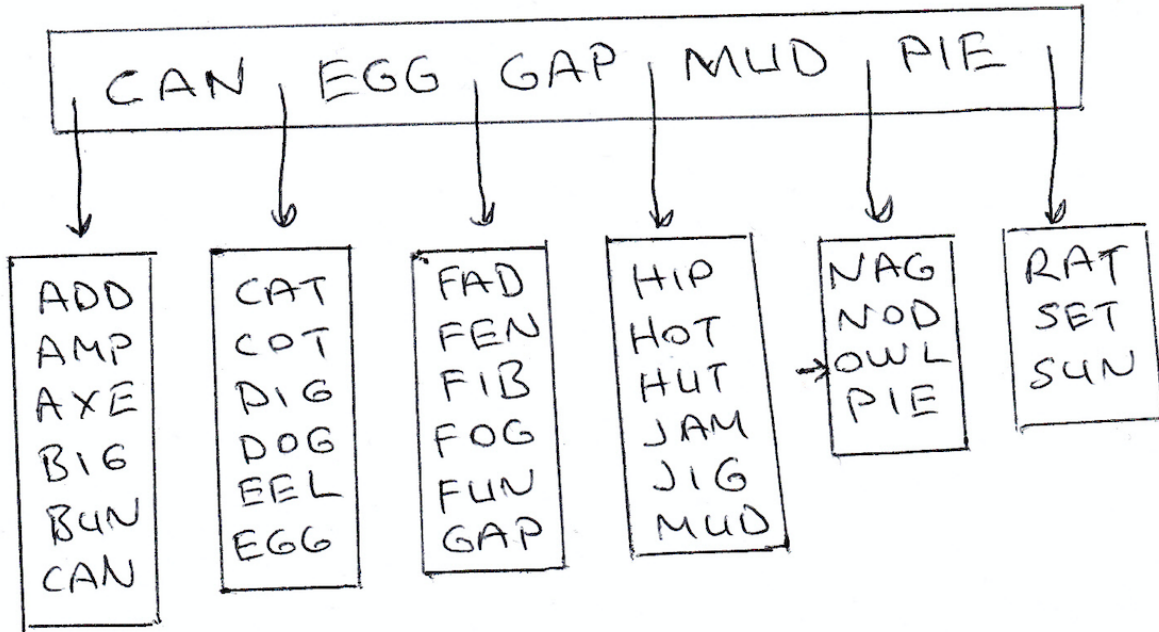 CAN EGG GAP MUD PIE
ADD
AMP
AXE
BIG
BUN
CAN
CAT
COT
DIG
DOG
EEL
EGG
FAD
FEN
FIB
FOG
FUN
GAP
HIP
HOT
HUT
JAM
JIG
MUD
NAG
NOD
OWL
PIE
RAT
SET
SUN